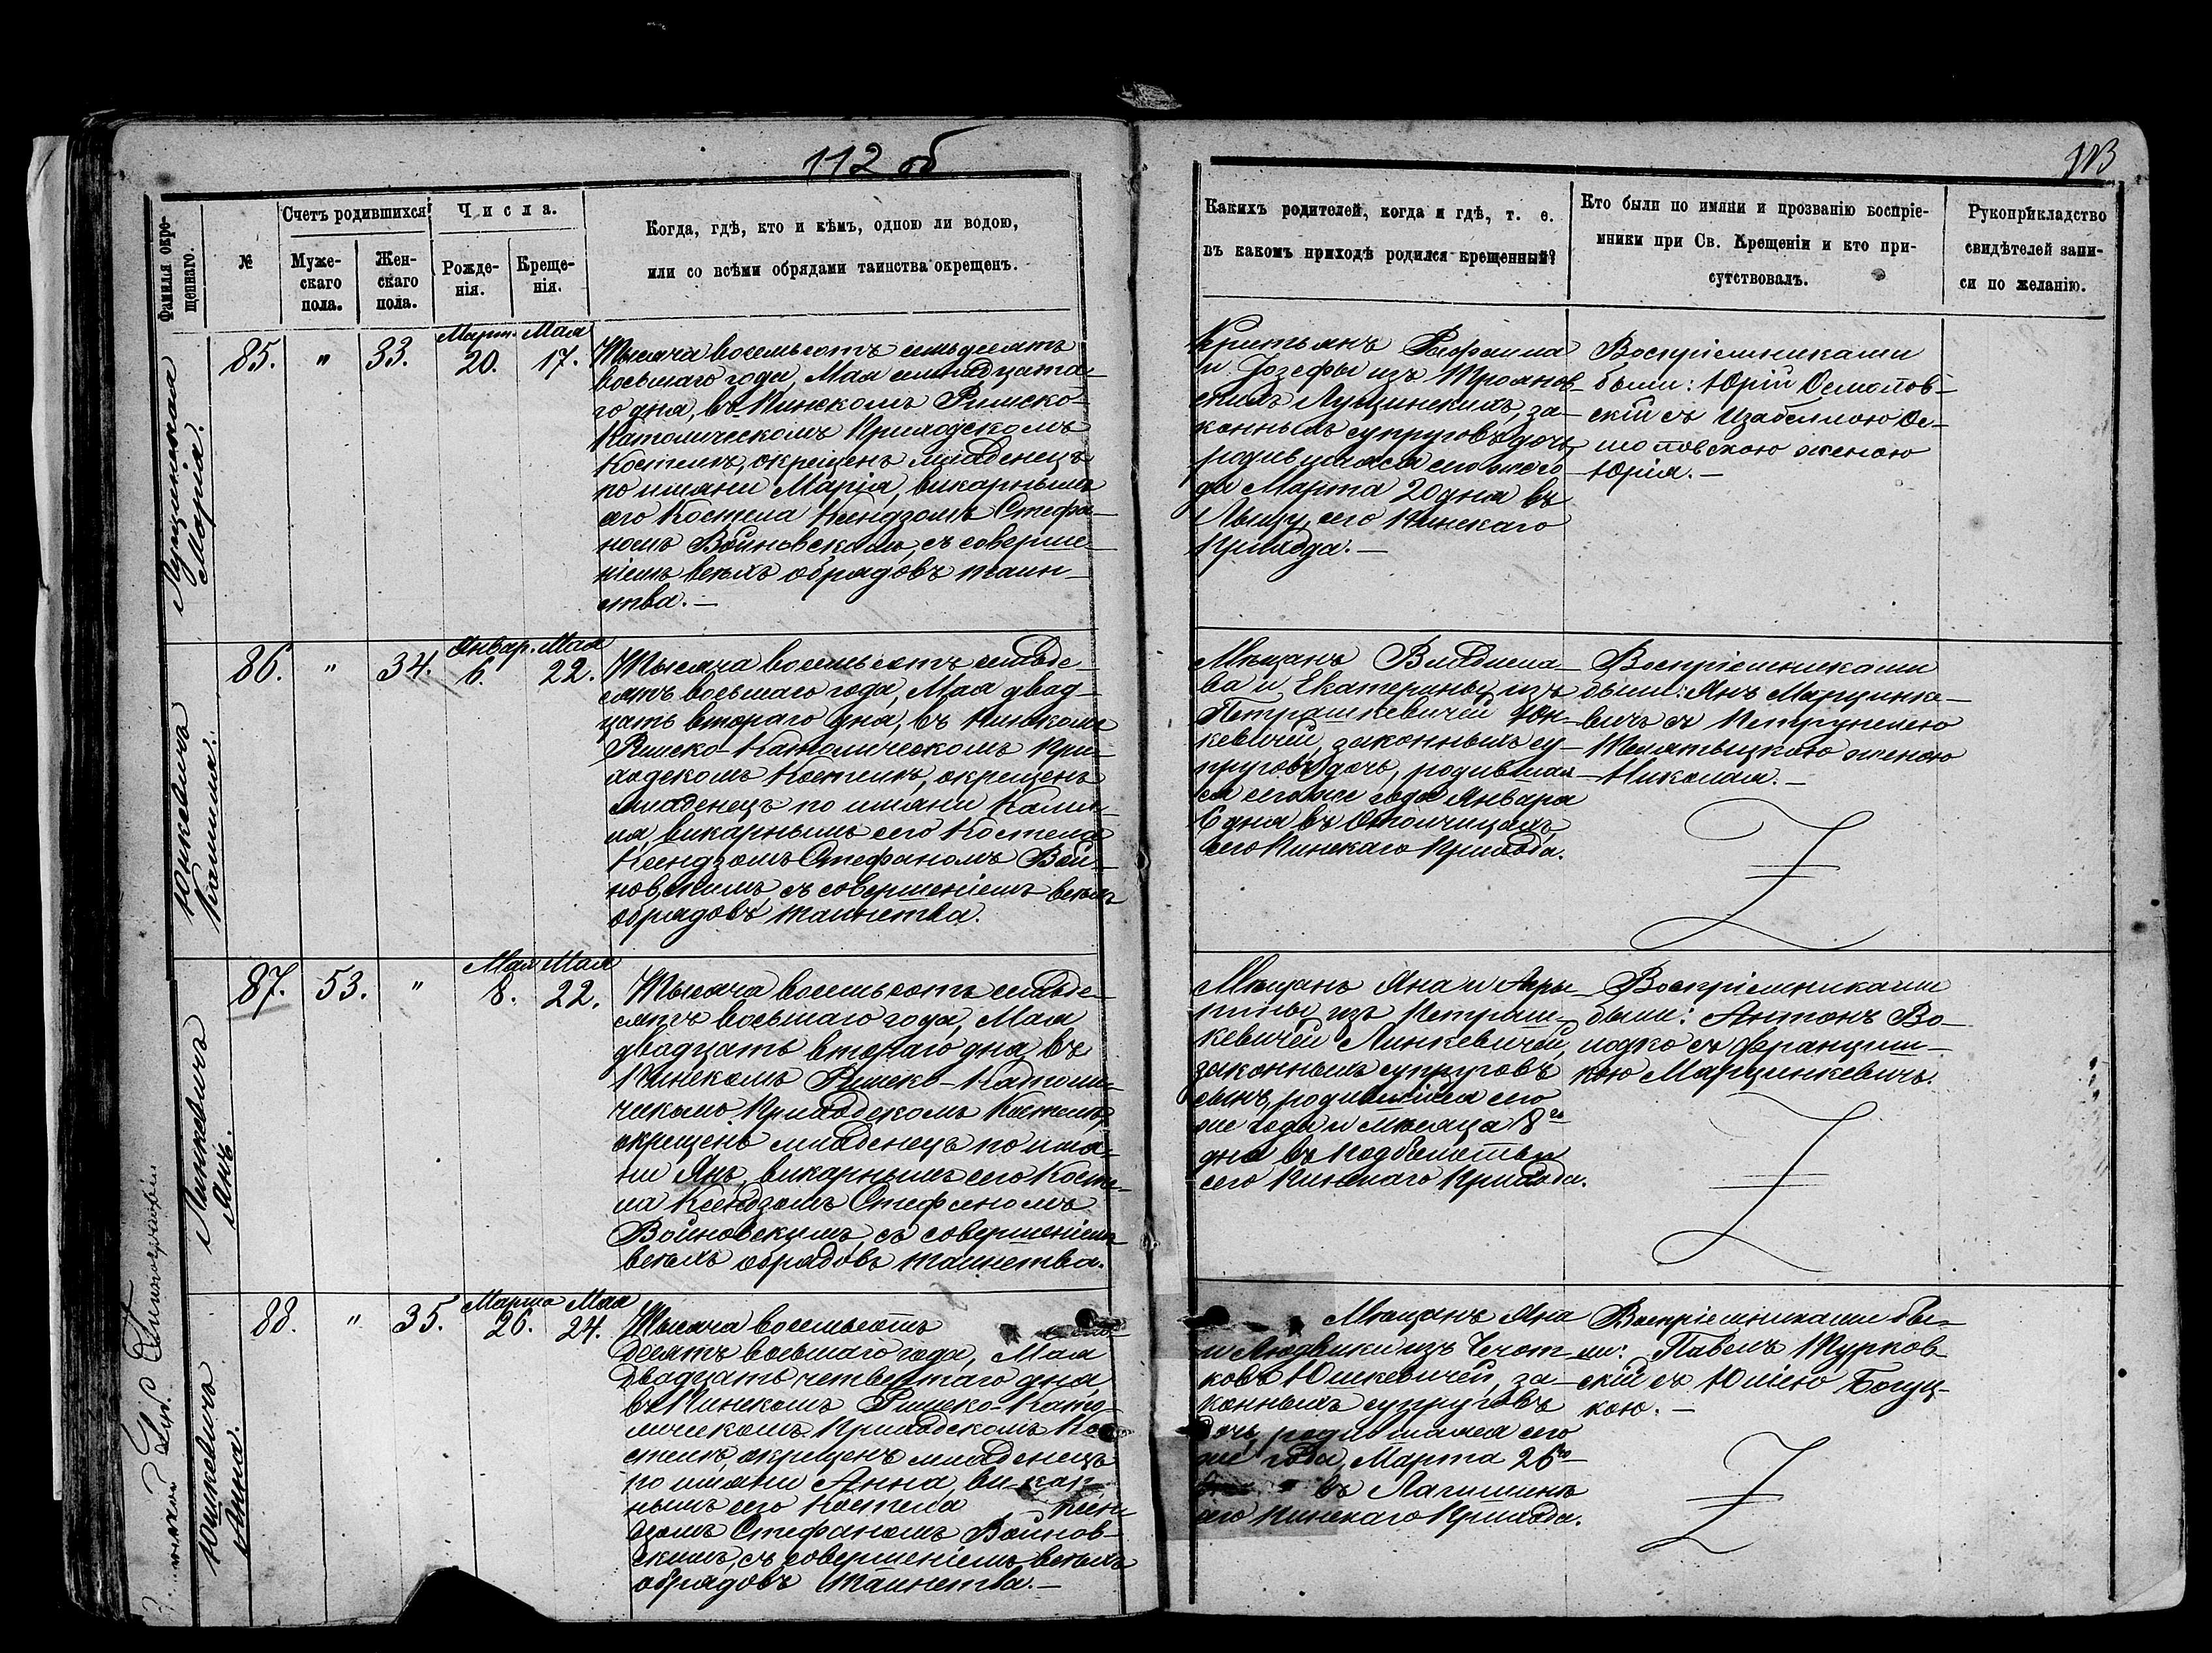 112 об
113
Фамилія окре-
щеннаго.
№
Счетъ родившихся
Муже-
скаго
пола.
Жен-
скаго
пола.
Числа.
Рожде-
нія.
Креще-
нія.
Когда, гдѣ, кто и кѣмъ, одною ли водою,
или со всѣми обрядами таинства окрещенъ.
Какихъ родителей, когда и гдѣ, т. е.
въ какомъ приходѣ родился крещенный?
Кто были по имяни и прозванію воспріе-
мники при Св. Крещеніи и кто при-
сутствовалъ.
Рукоприкладство
свидѣтелей запи-
си по желанію.
Лущинская
Марія.
85.
"
33.
Март.
20.
Мая
17.
Тысяча восемьсотъ семьдесятъ
восьмаго года, Мая семнадцата-
го дня, въ Пинскомъ Римско-
Католическомъ Приходскомъ
Костелѣ, окрещенъ младенецъ
по имяни Марія, викарнымъ
сего Костела Ксендзомъ Стефа-
номъ Войновскимъ, съ соверше-
ніемъ всѣхъ обрядовъ таин-
ства.—
Крестьянъ Рафаила
и Іозефы изъ Трояновъ-
скихъ Лущинскихъ, за-
конныхъ супруговъ дочь,
родившаяся сего же го-
да Марта 20 дня въ
сего Пинскаго
Прихода.—
Воспріемниками
были: Юрій Осмолов-
скій съ Изабеллою Ос-
моловскою женою
Юрія.—
Юнкевичъ
Камила.
86.
"
34.
Январ.
6.
Мая
22.
Тысяча восемьсотъ семьде-
сятъ восьмаго года, Мая двад-
цать втораго дня, въ Пинскомъ
Римско-Католическомъ При-
ходскомъ Костелѣ, окрещенъ
младенецъ по имяни Ками-
ла, викарнымъ сего Костела
Ксендзомъ Стефаномъ Вой-
новскимъ, съ совершеніемъ всѣхъ
обрядовъ таинства.
Мѣщанъ Владисла-
ва и Екатерины изъ
Петрашкевичей Юн-
кевичей, законныхъ су-
пруговъ дочь, родившая-
ся сего же года Января
6 дня въ
сего Пинскаго Прихода.
Воспріемниками
были: Янъ Марцинке-
вичъ съ Петрунелею
женою
Николая.—
Линкевичъ
Янъ.
87.
53.
"
Мая
8.
Мая
22.
Тысяча восемьсотъ семьде-
сятъ восьмаго года, Мая
двадцать втораго дня, въ
Пинскомъ Римско-Католи-
ческомъ Приходскомъ Костелѣ,
окрещенъ младенецъ по имя-
ни Янъ, викарнымъ сего Косте-
ла Ксендзомъ Стефаномъ
Войновскимъ, съ совершеніемъ
всѣхъ обрядовъ таинства.
Мѣщанъ Яна и Агри-
пины изъ Петраш-
кевичей Линкевичей,
законныхъ супруговъ
сынъ, родившійся сего
же года и мѣсяца 8го
дня въ
сего Пинскаго Прихода.
Воспріемниками
были: Антонъ Во-
лодко съ Францишь-
кою Марцинкевичъ.
Юшкевичъ
Анна.
88.
"
35.
Марта
26.
Мая
24.
Тысяча восемьсотъ семь-
десятъ восьмаго года, Мая
двадцать четвертаго дня,
въ Пинскомъ Римско-Като-
лическомъ Приходскомъ Ко-
стелѣ, окрещенъ младенецъ
по имяни Анна, викар-
нымъ сего Костела Ксен-
дзомъ Стефаномъ Войнов-
скимъ, съ совершеніемъ всѣхъ
обрядовъ таинства.—
Мѣщанъ Яна
и Людвики изъ Чечот-
ковъ Юшкевичей, за-
конныхъ супруговъ
дочь, родившаяся сего
же года, Марта 26го
въ Логишинѣ
сего Пинскаго Прихода.
Воспріемниками бы-
ли: Павелъ Турков-
скій съ Юліею Богуц-
кою.—